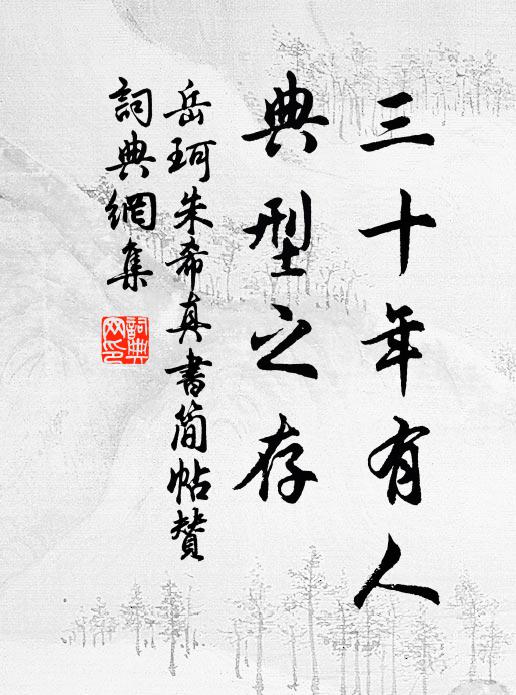 三十年有人
典型之存
岳珂朱希真書簡帖贊
詞典網集
詞典网印